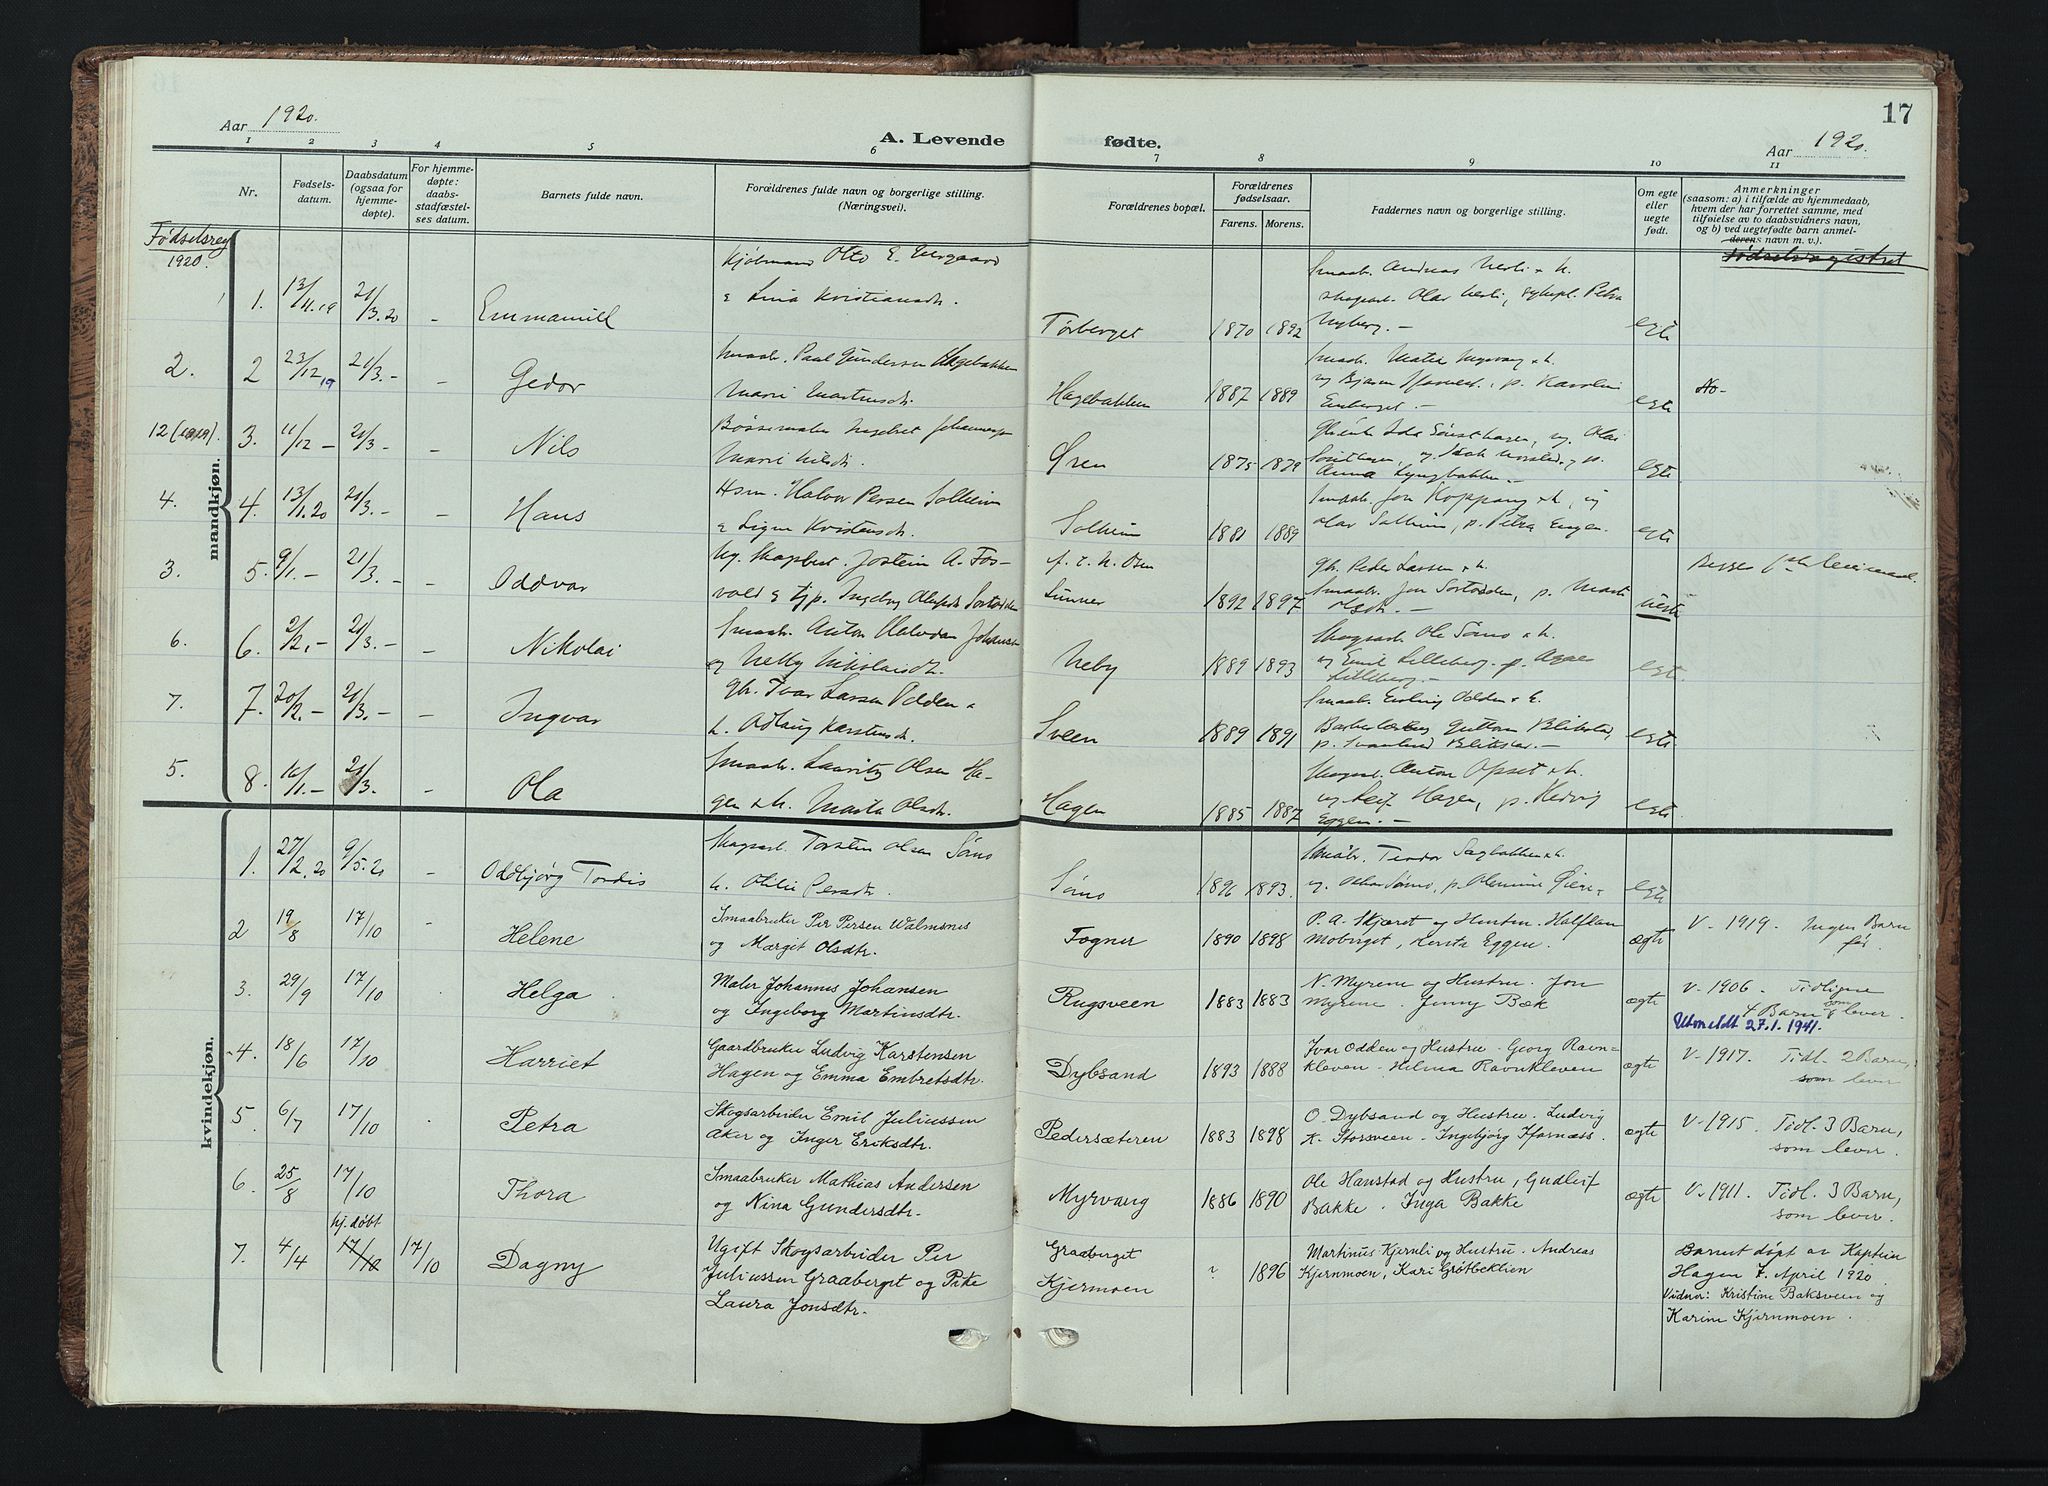 16
17
Aar 1920.
A. Levende
fødte.
Aar 1920.
1 2 3 4 5 6
7 8 9 10 11
Nr.
Fødsels-
datum.
Daabsdatum
(ogsaa for
hjemme-
døpte).
For hjemme-
døpte:
daabs-
stadfæstel-
ses datum.
Barnets fulde navn.
Forældrenes fulde navn og borgerlige stilling.
(Næringsvei).
Forældrenes bopæl.
Forældrenes
fødselsaar.
Farens. Morens.
Faddernes navn og borgerlige stilling.
Om egte
eller
uegte
født.
Anmerkninger
(saasom: a) i tilfælde av hjemmedaab,
hvem der har forrettet samme, med
tilføielse av to daabsvidners navn,
og b) ved uegtefødte barn anmel-
derens navn m. v.).
Fødselsregistret
Fødselsreg
1920.
mandkjøn.
Kjøbmand Otto E.
1. 13/11.19 21/3.20 - Emmanuel
& Lina Kristiansdr.
Tørberget 1870 1892
Smaabr. Andreas Nerli & h.
Olav Nerli, Petra
Nyberg. -
egte
2. 2 23/12 19 21/3. - - Gedor
Smaabr. Paul Gundersen Hagebakken
Marie Martinsdr.
Hagebakken 1887 1889
og Bjarne p. Karoline
Enberget. -
egte No-
12 (1919). 3. 11/12 - 21/3 - - Nils
Bøssemaker Ingebret Johannesen
Marie Nilsdr.
Øren 1875 1879
Anna Lyngbakken -
egte
4. 4. 13/1.20 21/3. - - Hans
Hsm. Halvor Persen Solheim
& Signe Kristensdr.
Solheim 1881 1889
Smaabr. Jon Koppang & h., og
Olav Solheim, p. Petra Engen.
egte
3. 5. 9/1. - 21/3. - - Oddvar
Ug. Skogbest. Jostein A. Fos-
vold & tjp. Ingeborg Olufsdr. Sortodden
f. t. N. Osen
Lunner 1892 1897
Gbr. Peder Larsen & h.
Smaabr. Jon Sortodden, p. Marte
Olsdr. -
uegte
Begges 1ste
6. 6. 2/2. - 21/3. - - Nikolai
Smaabr. Anton Halvdan Johansen
og Nelly Nikolaisdtr.
Neby 1889 1893
Skogsarb. Ole Sømo & h.
og Emil Lilleberg. p. Agnes
Lilleberg. -
egte.
7. 7. 20/2. - 21/3. - - Ingvar
Gbr. Ivar Larsen Odden &
h. Adlaug Karstensdr.
Sveen 1889 1891
Smaabr. Erling Odden & E.
Guttorm Blikstad,
p. Svanhild Blikstad. -
egte
5. 8. 16/1. - 21/3. - Ola
Smaabr. Lauritz Olsen Ha-
gen & h. Marte Olsdr.
Hagen 1885 1887
Skogsarb. Anton Opset & h.
og Leif Hagen, p. Hedvig
Eggen. -
egte
kvindekjøn.
1. 27/2. 20 9/5.20 - Oddbjørg Tordis
Skogsarb. Torsten Olsen Sømo
h. Otilie Persdr.
Sømo 1896 1893.
Smabr. Teodor Sagbakken & h.
og Oskar Sømo, p. Olemine
egte
2 19/8 17/10 - Helene
Smaabruker Per Persen Walmsnes
og Margit Olsdtr.
Togner 1890 1898
P. A. Skjæret og Hustru. Halfdan
Moberget, Kersta Eggen.
ægte V. 1919. Ingen Barn
før.
3. 29/9 17/10 Helga
Maler Johannes Johansen
og Ingeborg Martinsdtr.
Rugsveen 1883 1883
N. Myrene og Hustru. Jon
Myrene. Jenny Bæk
ægte V. 1906. Tidligere
4 Barn som lever.
Utmeldt 27.1.1941.
4. 18/6 17/10 Harriet
Gaardbruker Ludvig Karstensen
Hagen og Emma Embretsdtr.
Dybsand 1893 1888
Ivar Odden og Hustru. Georg Ravn-
kleven. Helma Ravnkleven
ægte V. 1917. Tidl. 2 Barn,
som lever
5. 6/7 17/10 Petra
Skogsarbeider Emil Juliussen
Aker og Inger Eriksdtr.
Pedersæteren 1883 1898
O. Dybsand og Hustru. Ludvig
K. Storsveen. Ingebjørg Kfornæss.
ægte V. 1915. Tidl. 3 Barn,
som lever.
6. 25/8 17/10 Thora
Smaabruker Mathias Andersen
og Nina Gundersdtr.
Myrvang 1886 1890
Ole Hanstad og Hustru, Gudleif
Bakke. Inga Bakke
ægte V. 1911. Tidl. 3 Barn,
som lever.
hj. døbt
7. 4/4 17/10 17/10 Dagny
Ugift Skogsarbeider Per
Juliussen Graaberget og Pike
Laura Jonsdtr.
Graaberget
Kjermoen
? 1896
Martinus Kjernli og Hustru. Andreas
Kjernmoen, Kari Grøtbekklien
Barnet døpt av Kaptein
Hagen 7. April 1920.
Vidner: Kristine Baksveen og
Karine Kjernmoen.